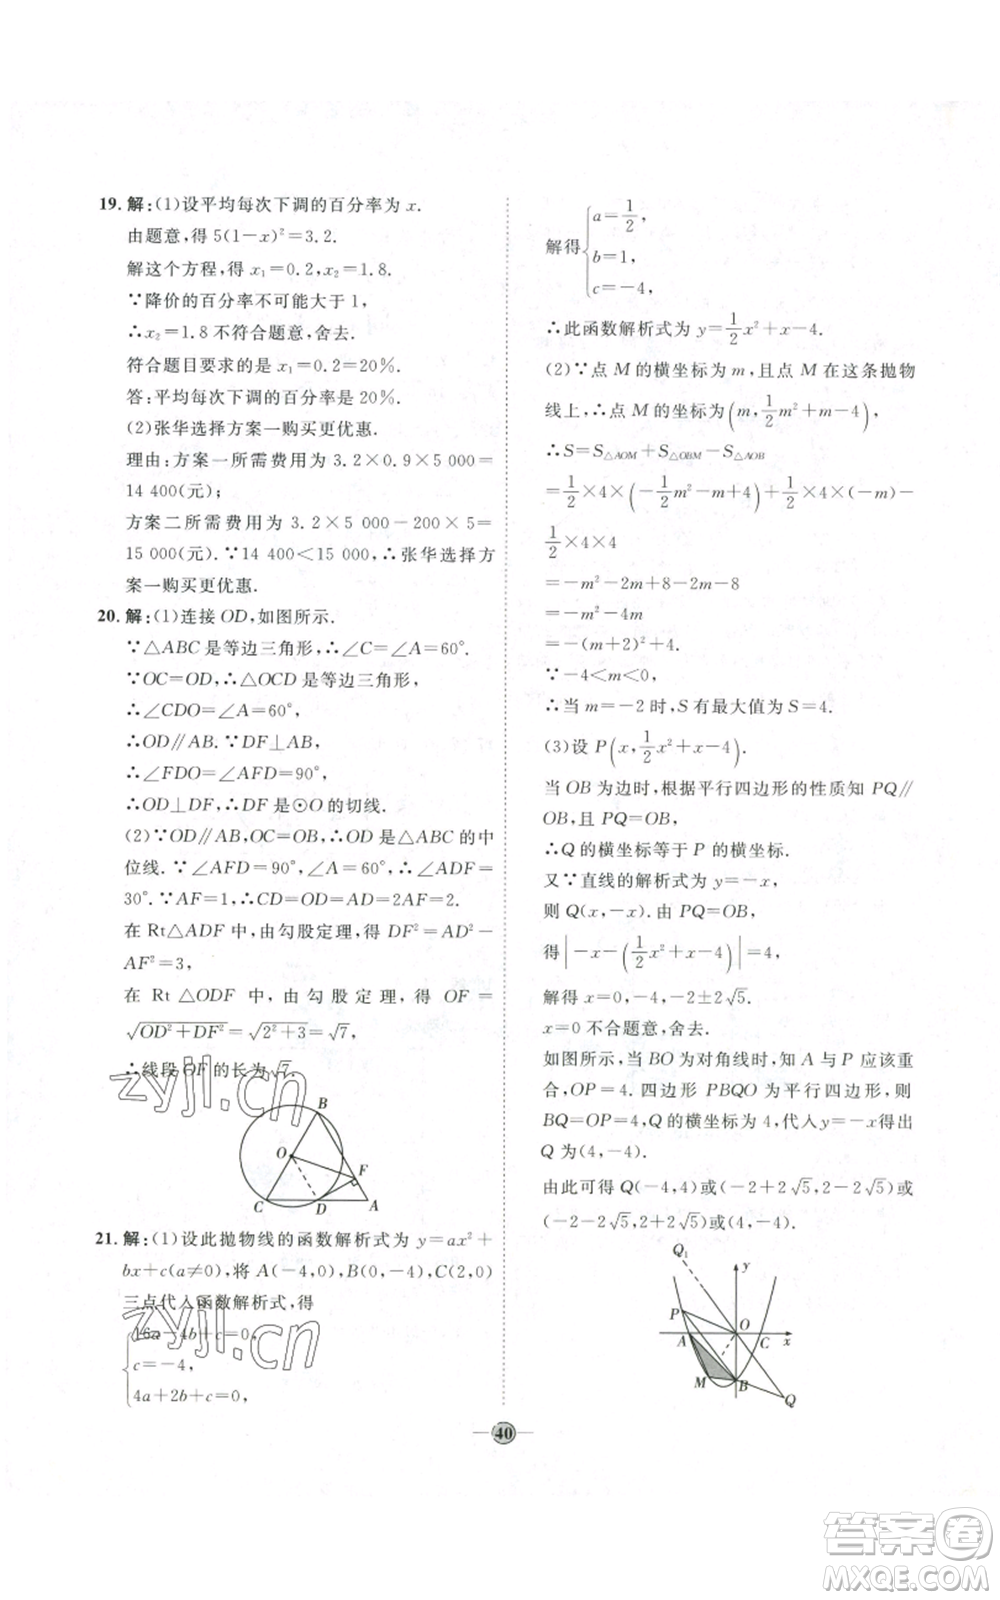 19. 解:(1)设平均每次下调的百分率为 x.
由题意,得 5(1－x)²＝3.2.
解这个方程,得 x₁＝0.2,x₂＝1.8.
∵降价的百分率不可能大于 1,
∴x₂＝1.8 不符合题意,舍去.
符合题目要求的是 x₁＝0.2＝20%.
答:平均每次下调的百分率是 20%.
(2)张华选择方案一购买更优惠.
理由:方案一所需费用为 3.2×0.9×5 000＝
14 400(元);
方案二所需费用为 3.2×5 000－200×5＝
15 000(元). ∵14 400＜15 000,∴张华选择方
案一购买更优惠.
20. 解:(1)连接 OD,如图所示.
∵△ABC 是等边三角形,∴∠C＝∠A＝60°.
∵OC＝OD,∴△OCD 是等边三角形,
∴∠CDO＝∠A＝60°,
∴OD∥AB. ∵DF⊥AB,
∴∠FDO＝∠AFD＝90°,
∴OD⊥DF,∴DF 是⊙O 的切线.
(2)∵OD∥AB,OC＝OB,∴OD 是△ABC 的中
位线. ∵∠AFD＝90°,∠A＝60°,∴∠ADF＝
30°. ∵AF＝1,∴CD＝OD＝AD＝2AF＝2.
在 Rt△ADF 中,由勾股定理,得 DF²＝AD²－
AF²＝3,
在 Rt△ODF 中,由勾股定理,得 OF＝
√(OD²＋DF²)＝√(2²＋3)＝√7,
∴线段 OF 的长为√7.
zyjl.cn
B
O
F
C D A
21. 解:(1)设此抛物线的函数解析式为 y＝ax²＋
bx＋c(a≠0),将 A(－4,0),B(0,－4),C(2,0)
三点代入函数解析式,得
zyjl.cn
16a－4b＋c＝0,
c＝－4,
4a＋2b＋c＝0,
解得{a＝1/2,
b＝1,
c＝－4,
∴此函数解析式为 y＝1/2x²＋x－4.
(2)∵点 M 的横坐标为 m,且点 M 在这条抛物
线上,∴点 M 的坐标为(m,1/2m²＋m－4),
∴S＝S△AOM＋S△OBM－S△AOB
＝1/2×4×(－1/2m²－m＋4)＋1/2×4×(－m)－
1/2×4×4
＝－m²－2m＋8－2m－8
＝－m²－4m
＝－(m＋2)²＋4.
∵－4＜m＜0,
∴当 m＝－2 时,S 有最大值为 S＝4.
(3)设 P(x,1/2x²＋x－4).
当 OB 为边时,根据平行四边形的性质知 PQ∥
OB,且 PQ＝OB,
∴Q 的横坐标等于 P 的横坐标.
又∵直线的解析式为 y＝－x,
则 Q(x,－x). 由 PQ＝OB,
得|－x－(1/2x²＋x－4)|＝4,
解得 x＝0,－4,－2±2√5.
x＝0 不合题意,舍去.
如图所示,当 BO 为对角线时,知 A 与 P 应该重
合,OP＝4. 四边形 PBQO 为平行四边形,则
BQ＝OP＝4,Q 的横坐标为 4,代入 y＝－x 得出
Q 为(4,－4).
由此可得 Q(－4,4)或(－2＋2√5,2－2√5)或
(－2－2√5,2＋2√5)或(4,－4).
Q₁ y
P
O
A C x
M B
Q
40
答案圈
MXQE.COM